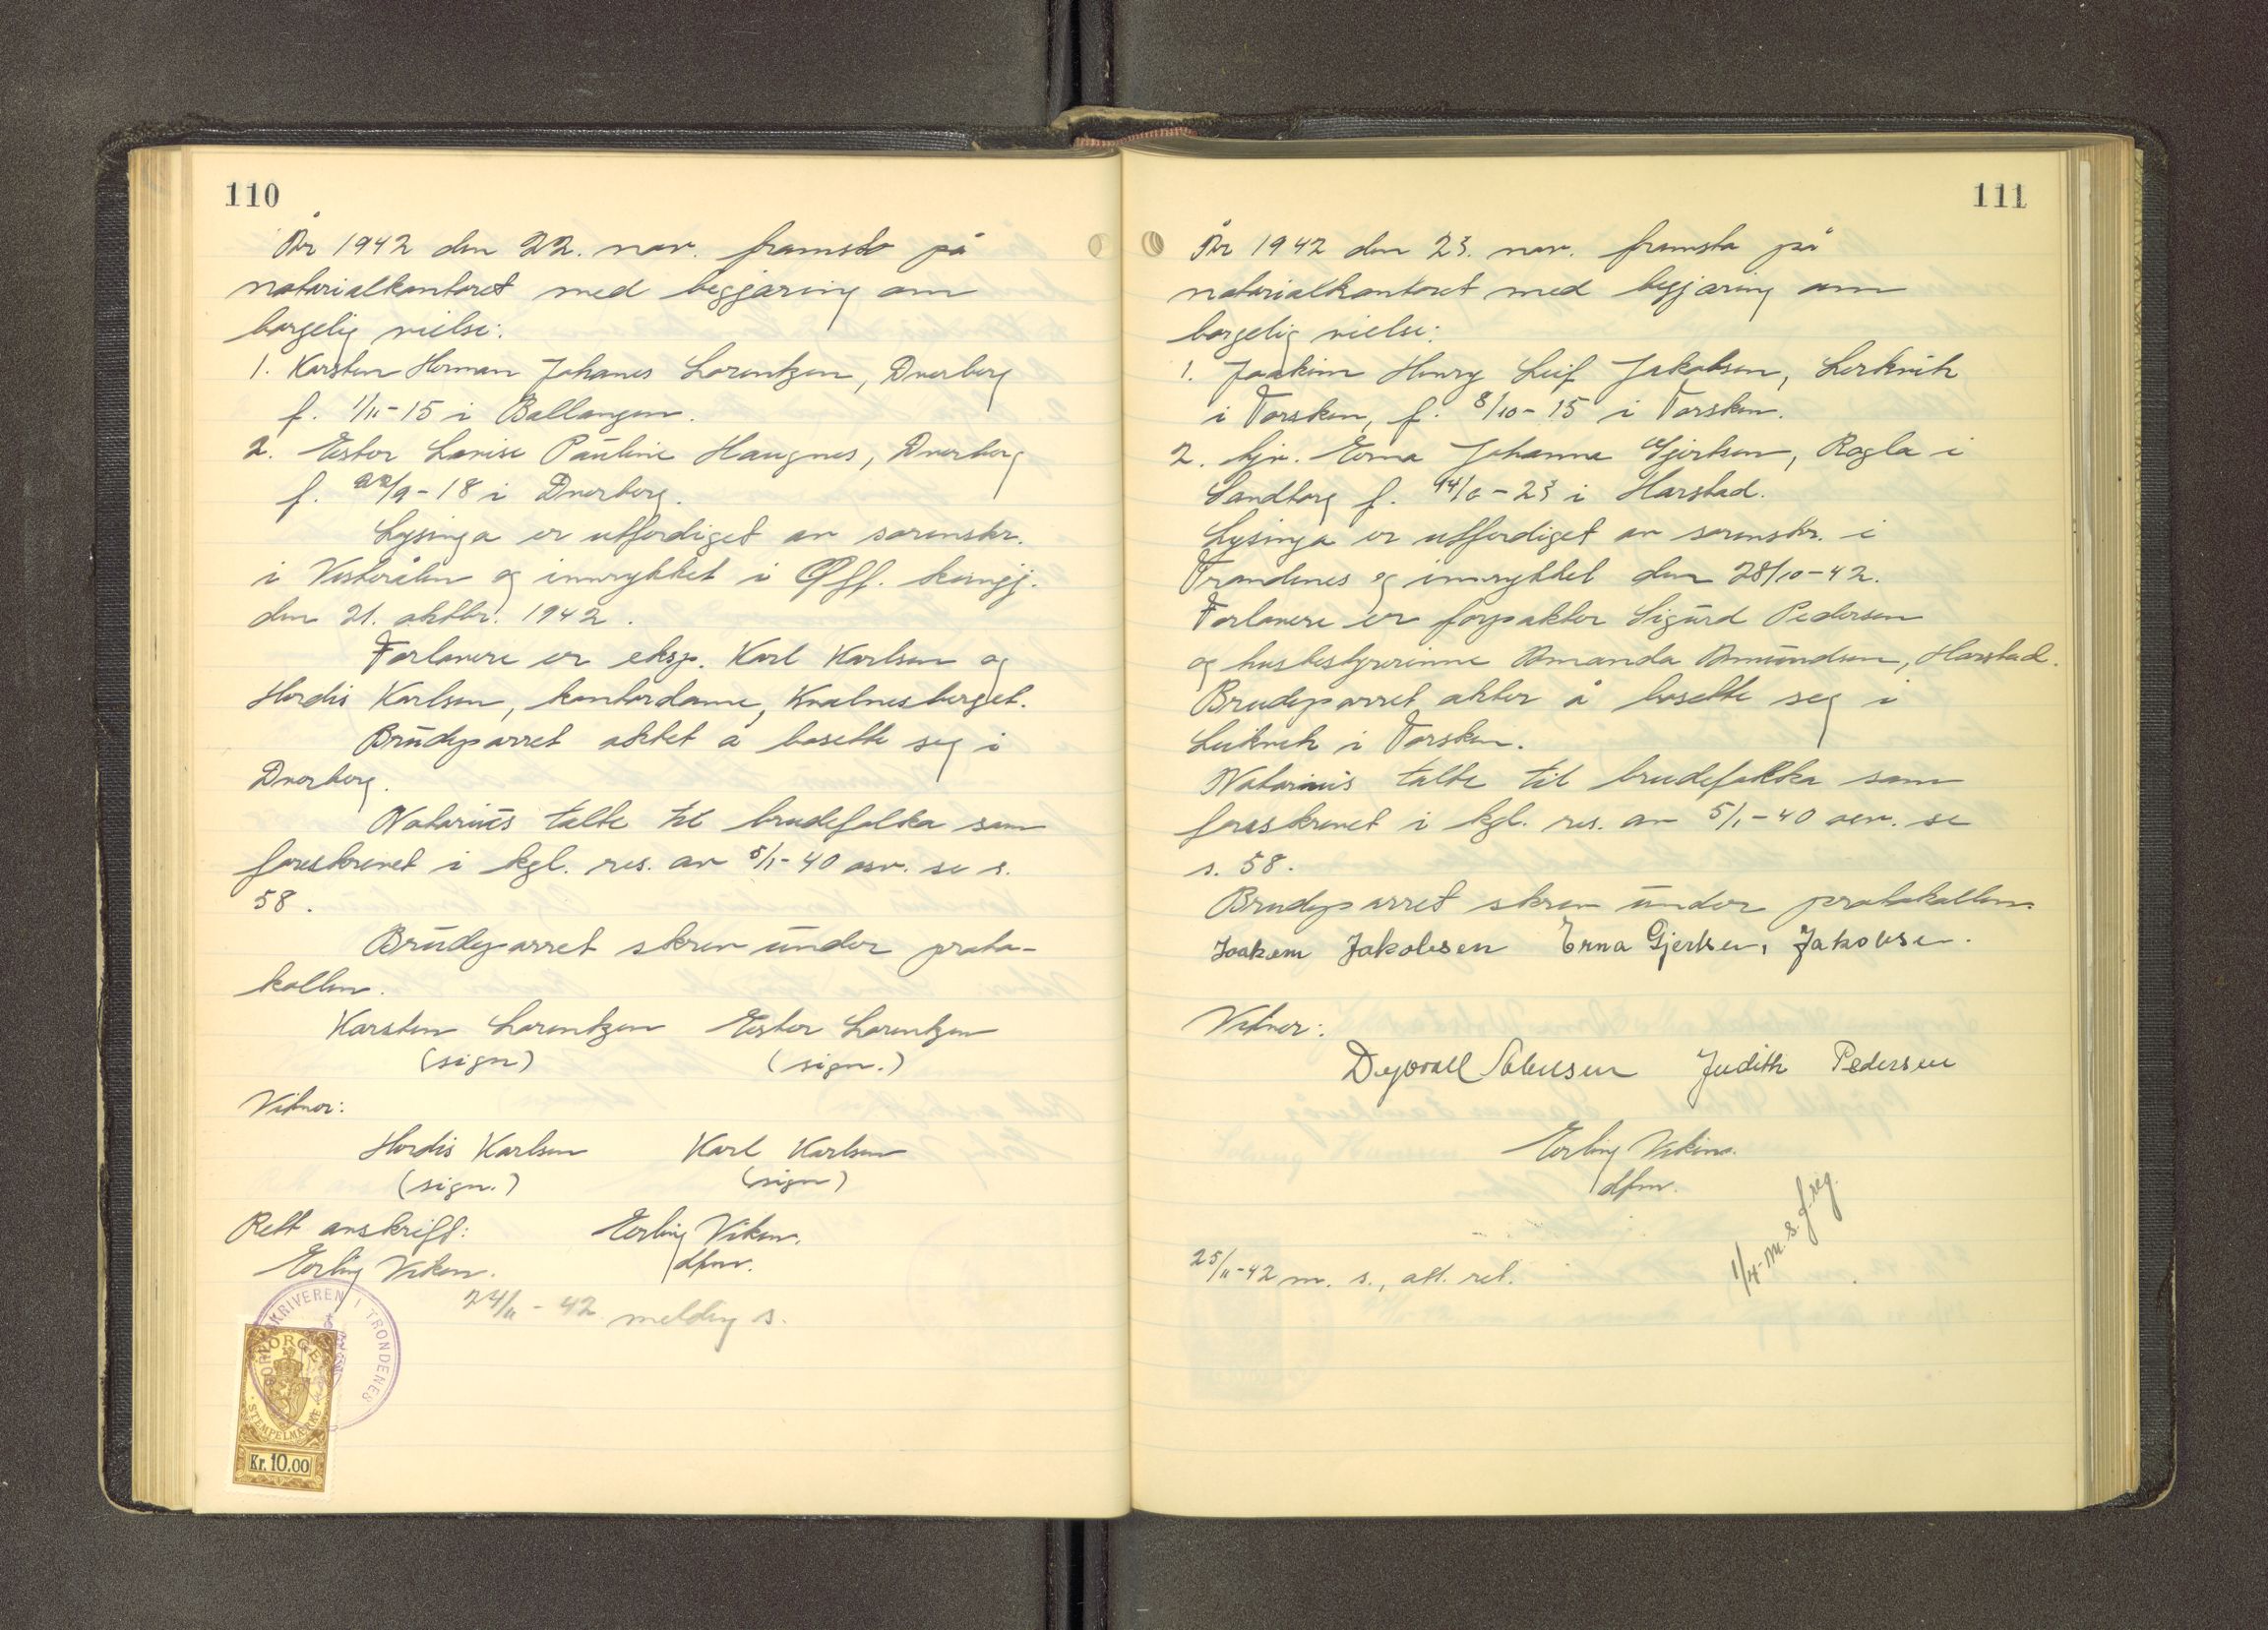 110
År 1942 den 22. nov. framsto på
notarialkontoret med begjæring om
borgelig vielse:
1. Karsten Herman Johanes Lorentzen, Dverberg
f. 1/11-15 i Ballangen.
2. Ester Lovise Pauline Haugnes, Dverberg
f. 22/9-18 i Dverberg.
Lysinga er utferdiget av sorenskr.
i Vesterålen og innrykket i Off. kunngj.
den 21. oktbr. 1942.
Forlovere er eksp. Karl Karlsen og
Hordis Karlsen, kontordame, Kvalnesberget.
Brudeparret aktet å bosette seg i
Dverberg.
Notarius talte til brudefolka som
foreskrevet i kgl. res. av 5/1-40 osv. se s.
58.
Brudeparret skrev under proto-
kollen.
Karsten Lorentzen Ester Lorentzen
(sign) (sign.)
Vitner:
Hordis Karlsen Karl Karlsen
(sign.) (sign)
Rett avskrift: Erling Viken.
Erling Viken. dfm.
24/11-42 melding s.
SORENSKRIVEREN I TRONDENES
NORGE
STEMPELMERKE
Kr. 10.00
111
År 1942 den 23. nov. framsto på
notarialkontoret med begjæring om
borgelig vielse:
1. Joakim Henry Leif Jakobsen,
i Torsken, f. 8/10-15 i Torsken.
2. Erna Johanna Gjertsen, Rogla i
Sandtorg f. 14/6-23 i Harstad.
Lysinga er utferdiget av sorenskr. i
Trondenes og innrykket den 28/10-42.
Forlovere er forpakter Sigurd Pedersen
og husbestyrerinne Amanda Amundsen, Harstad.
Brudeparret akter å bosette seg i
i Torsken.
Notarius talte til brudefolka som
foreskrevet i kgl. res. av 5/1-40 osv. se
s. 58.
Brudeparret skrev under protokollen.
Joakem Jakobsen Erna Gjertsen, Jakobsen.
Vitner:
Judith Pedersen
Erling Viken.
dfm.
25/11-42 m. s., att. ret.
1/4- m. s. f. reg.